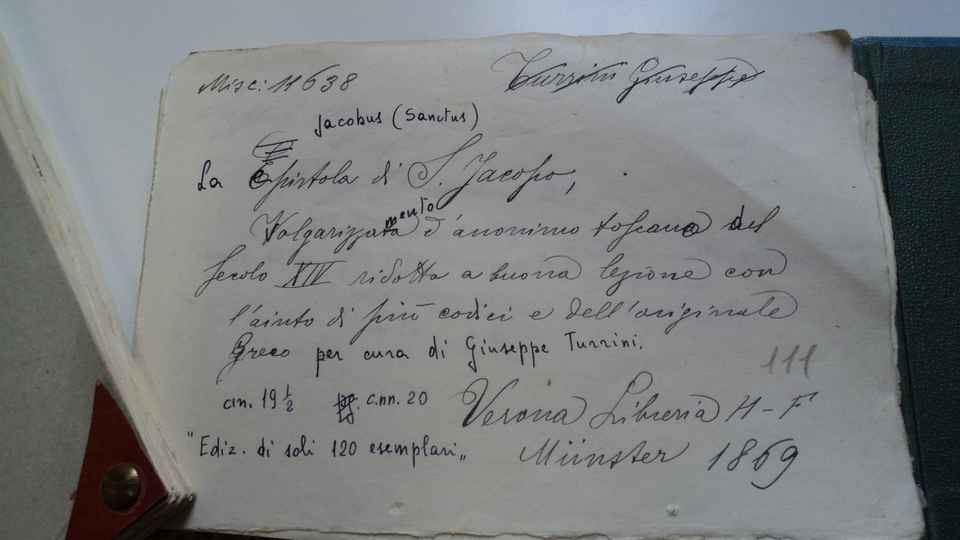 Misc: H 638
Turrini Giuseppe
Jacobus (Sanctus)
La Epistola di S. Jacopo,
Volgarizzamento d'anonimo toscano del
Secolo XIV ridotta a buona lezione con
l'aiuto di più codici e dell'originale
Greco per cura di Giuseppe Turrini.
111
cm. 19 1/2 c.nn. 20 Verona Libreria H-F
"Ediz. di soli 120 esemplari„ Münster 1869